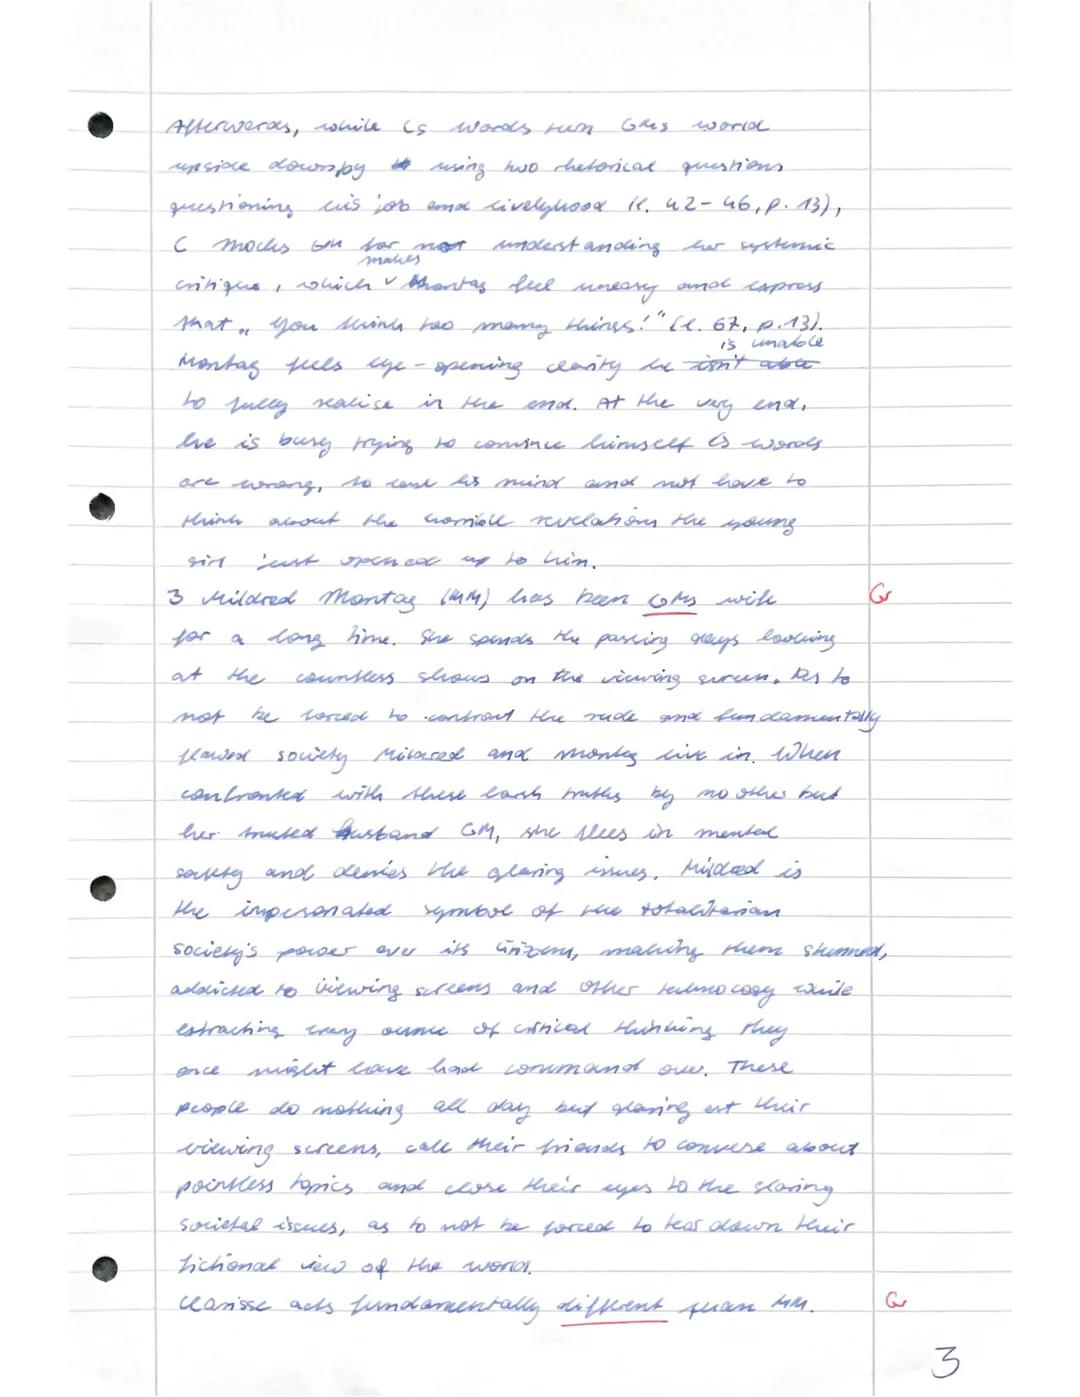 Afterwards, while Cs words turn GMs world
upside down by using two rhetorical questions
questioning his job and livelyhood (l. 42-46, p. 13),
C mocks GM for not understanding her systemic
makes
critique, which ˅ Montag feel uneasy and express
that „You think too many things!" (l. 67, p. 13).
is unable
Montag feels eye-opening clarity he isn't able
to fully realise in the end. At the very end,
he is busy trying to convince himself Cs words
are wrong, to ease his mind and not have to
think about the horrible revelations the young
girl just opened up to him.
3 Mildred Montag (MM) has been GMs wife Gr
for a long time. She spends the passing days looking
at the countless shows on the viewing screen. As to
not be forced to confront the rude and fundamentally
flawed society Mildred and Montag live in. When
confronted with these harsh truths by no other but
her trusted husband GM, she flees in mental
safety and denies the glaring issues. Mildred is
the impersonated symbol of the totalitarian
society's power over its citizens, making them stunned,
addicted to viewing screens and other technology while
extracting every ounce of critical thinking they
once might have had command over. These
people do nothing all day but glaring at their
viewing screens, call their friends to converse about
pointless topics and close their eyes to the glaring
societal issues, as to not be forced to tear down their
fictional view of the world.
Clarisse acts fundamentally different than MM. Gr
3